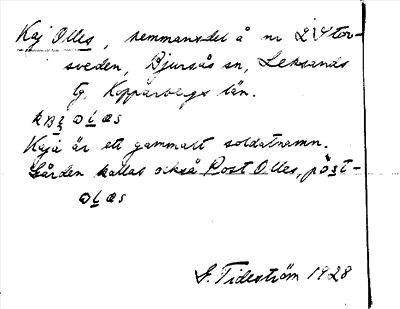 Kaj Olles, hemmansdel å nr 2 Vtor-
sveden, Bjursås sn, Leksands
tg, Kopparbergs län.
Kaja är ett gammalt soldatnamn.
Gården kallas också Post Olles, påst-
ɔlas
G. Tideström 1928